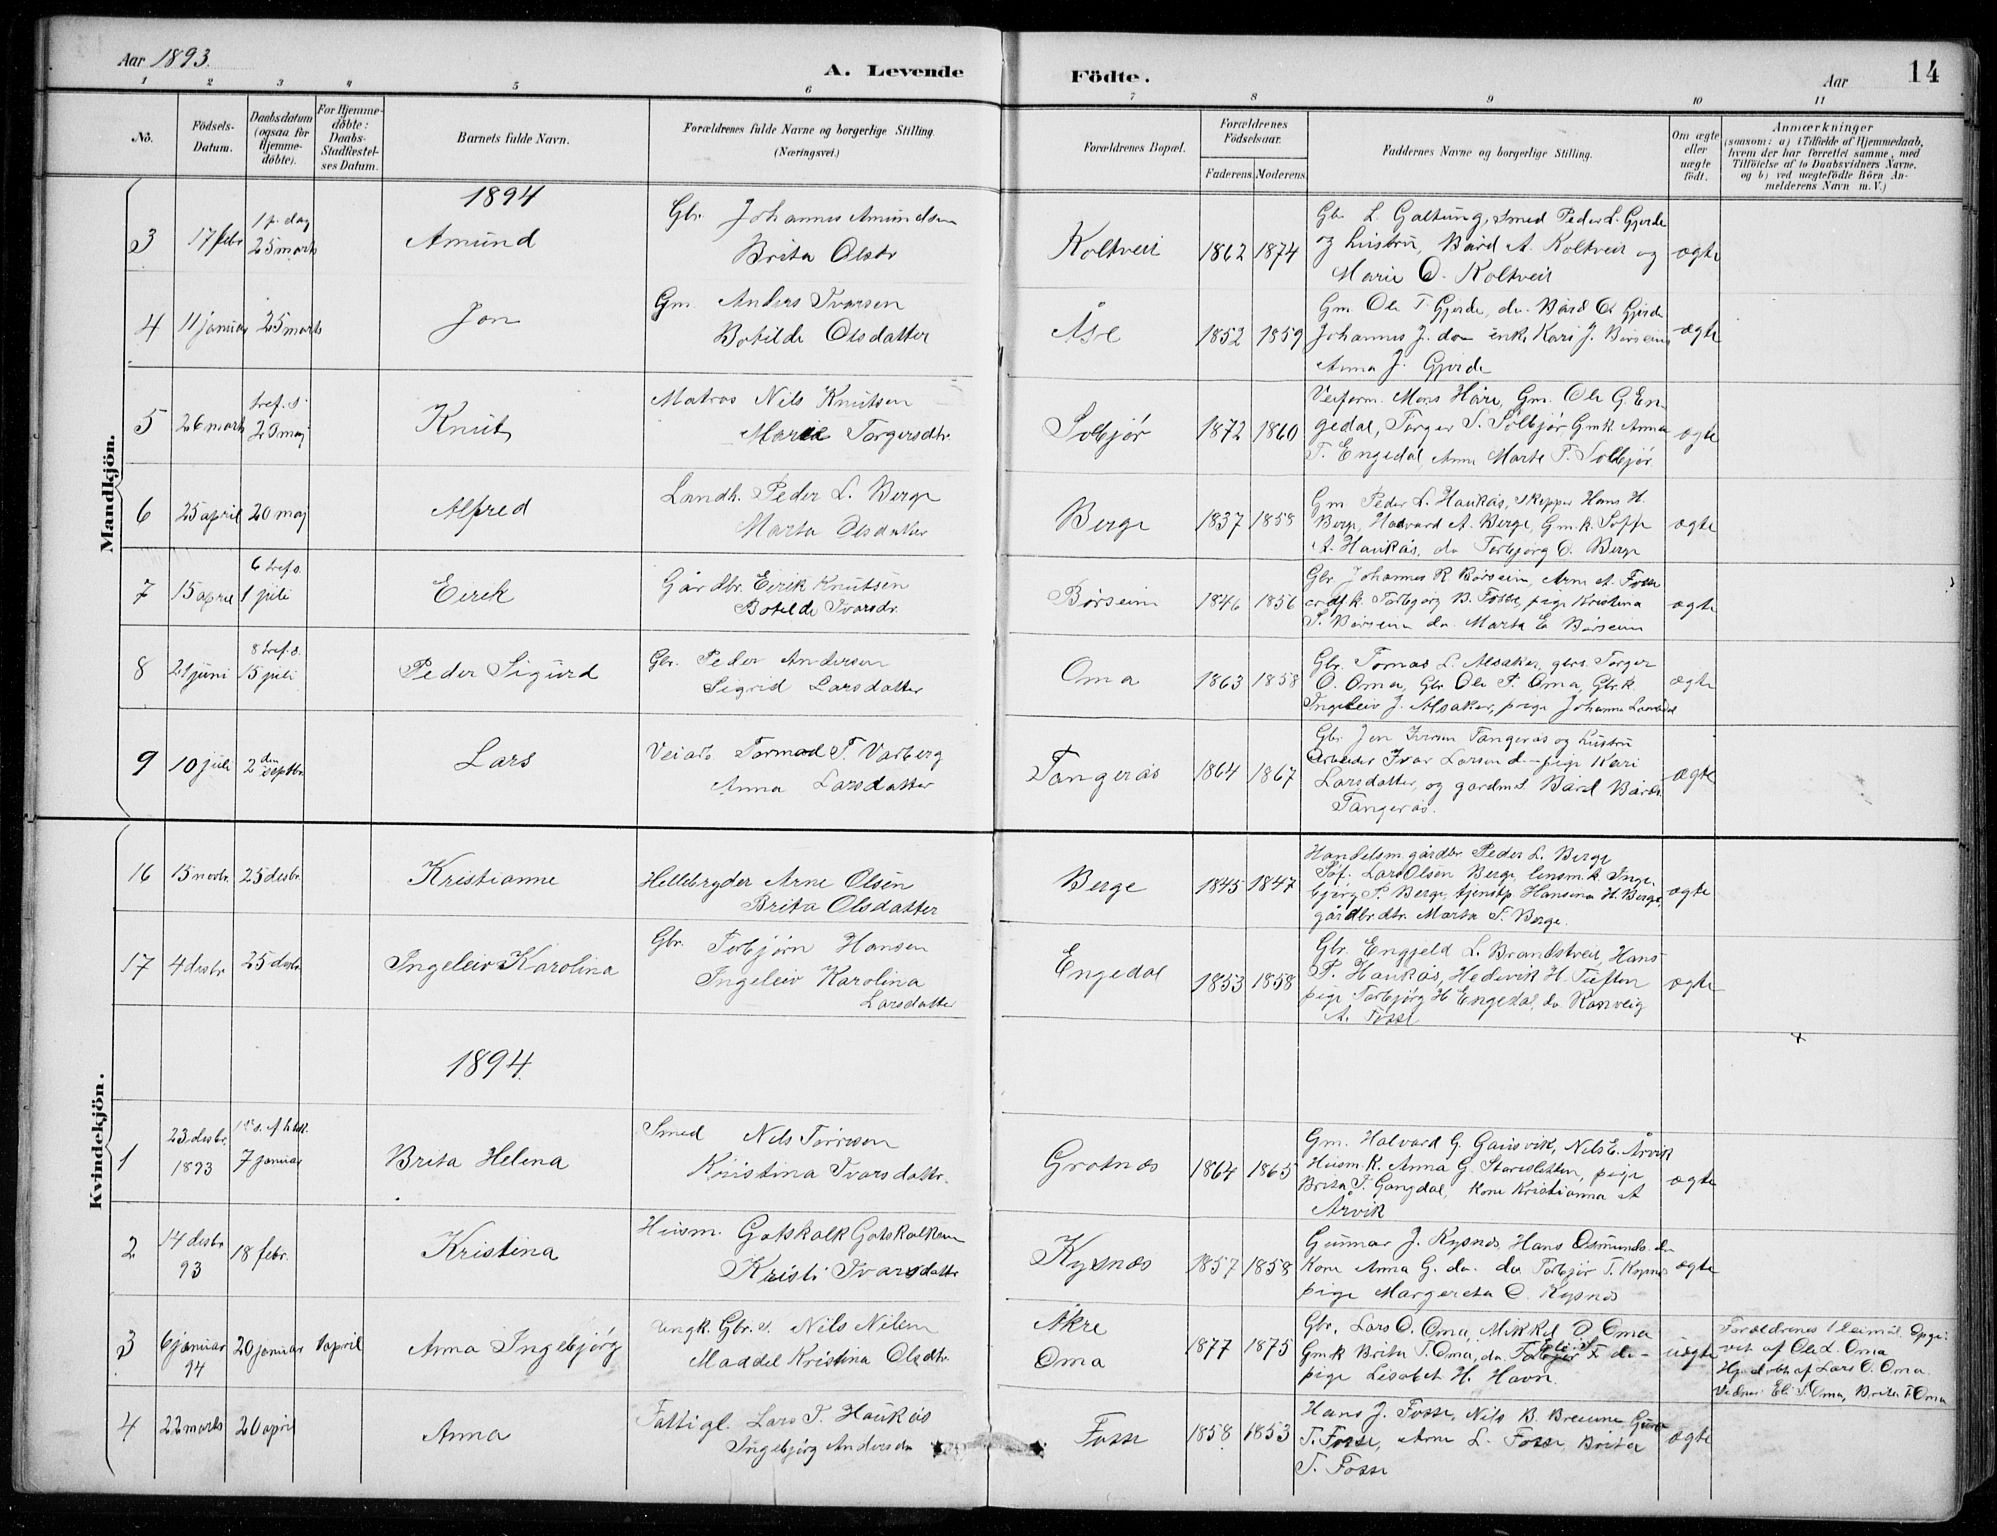 Aar 1893.
A. Levende Födte.
Aar
14
1 2 3 4 5 6 7 8 9 10 11
No.
Födsels-Datum.
Daabsdatum (ogsaa for Hjemme-döbte).
For Hjemme-döbte: Daabs-Stadfæstel-ses Datum.
Barnets fulde Navn.
Forældrenes fulde Navne og borgerlige Stilling. (Næringsvei.)
Forældrenes Bopæl.
Forældrenes Födselsaar.
Faderens. Moderens.
Faddernes Navne og borgerlige Stilling.
Om ægte eller uægte födt.
Anmærkninger
(saasom: a) i Tilfælde af Hjemmedaab, hvem der har forrettet samme, med Tilföielse af to Daabsvidners Navne, og b) ved uægtefödte Börn An-melderens Navn m. V.)
Mandkjön.
1894
3 17 febr 1 p. dag 25 marts Amund
Gbr. Johannes Amundsen
Brita Olsdr
Koltveit 1862 1874
Gbr L. Galtung, Smed Peder L. Gjerde
og hustru, Bård A. Koltveit og
Marie O. Koltveit
ægte
4 11 januar 25 marts Jon
Gm. Anders Ivarsen
Botilde Olsdatter
Åse 1852 1859
Gm Ole T. Gjerde, do. Bård O Gjerde
Johannes J. do enk. Kari J. Børseim
Anna J. Gjerde
ægte
5 26 marts Knut
Matros Nils Knutsen
Marie Torgersdtr.
Solbjør 1872 1860
Mons Håre, Gm. Ole G. En-
gedal, Torger S. Solbjør, Gmk. Anna
T. Engedal, Anna Marte T. Solbjør
ægte
6 25 april 20 maj Alfred
Landh. Peder L. Berge
Marta Olsdatter
Berge 1837 1858
Gm Peder L. Haukås, Skipper Hans H.
Berge, Hadvard A. Berge, Gm. k. Soffi
A. Haukås, do Torbjørg O. Berge
ægte
7 15 april 6 tref. s. 1 juli Eirik
Gårdbr. Eirik Knutsen
Botilde Ivarsdr.
Børseim 1846 1856
Gbr. Johannes R Børseim, Arne A. Fosse
k. Torbjørg B. Fosse, pige Kristina
S. Børseim do. Marta E Børseim
ægte
8 21 juni 8 tref. s. 15 juli Peder Sigurd
Gbr. Peder Andersen
Sigrid Larsdatter
Oma 1863 1858
Gbr. Tomas L. Alsaker, gbrs. Torger
O. Oma, Gbr Ole P. Oma, Gbr.k.
Ingeleiv J. Alsaker, pige Johanna
ægte
9 10 juli 2 den septbr. Lars
Veiarb Tormod T. Varberg
Anna Larsdatter
Tangerås 1864 1867
Gbr. Jon Iversen Tangerås og hustru
Arbeider Ivar Larsen do- pige Kari
Larsdatter, og gardm.s. Bård Bårds.
Tangerås.
ægte
Kvindekjön.
16 15 novbr. 25 desbr. Kristianne
Hellebryder Arne Olsen
Brita Olsdatter
Berge 1845 1847
Handelsm. gårdbr Peder L. Berge
Lars Olsen Berge, lensm.k. Inge-
bjørg P. Berge, tjenestp. Hansina H. Berge,
gårdbr.dtr. Marta S. Berge.
ægte
17 4 desbr. 25 desbr. Ingeleiv Karolina
Gbr. Torbjørn Hansen
Ingeleiv Karolina
Larsdatter
Engedal 1853 1858
Gbr. Engjeld L. Brandstveit, Hans
P. Haukås, Hedevik H. Tuften
pige Torbjørg H Engedal, do Ranveig
A. Fosse
ægte
1894
1 23 desbr. 1893 7 januar Brita Helena
Smed Nils Tørreson
Kristina Ivarsdattr.
Grotnes 1864 1865
Gm. Halvard G. Gausvik, Nils E. Årvik
Husm. K. Anna G. Staresletten, pige
Brita T. Gangdal, Kone Kristianna A
Årvik
ægte
2 14 desbr 93 18 febr. Kristina
Husm. Gotskalk Gotskalksen
Kristi Ivarsdattr
Kysnes 1857 1858
Gunnar J. Kysnes Hans Osmunds. do
Kone Anna G. do. do Torbjør T. Kysnes
pige Margereta O. Kysnes
ægte
3 6 januar 94 20 januar 1 april Anna Ingebjørg
Ungk. Gbr. s. Nils Nilsen
Maddel Kristina Olsdtr.
Åkre
Oma
1877 1875
Gbr. Lars O. Oma, Mikkel O Oma
Gmk Brita T. Oma, do. do-
pige Lisabet H. Havn.
uægte
Forældrenes 1 leimål. Opgi-
vet af Ole L. Oma
Hj. døbt af Lars O. Oma
Vidner Eli S. Oma, Brita T Oma
4 22 marts 20 april Anna
Fattigl. Lars T. Haukås
Ingebjørg Andersdr
Fosse 1858 1853
Hans J. Fosse, Nils B. Breiune
T. Fosse, Arne L. Fosse, Brita
T. Fosse
ægte